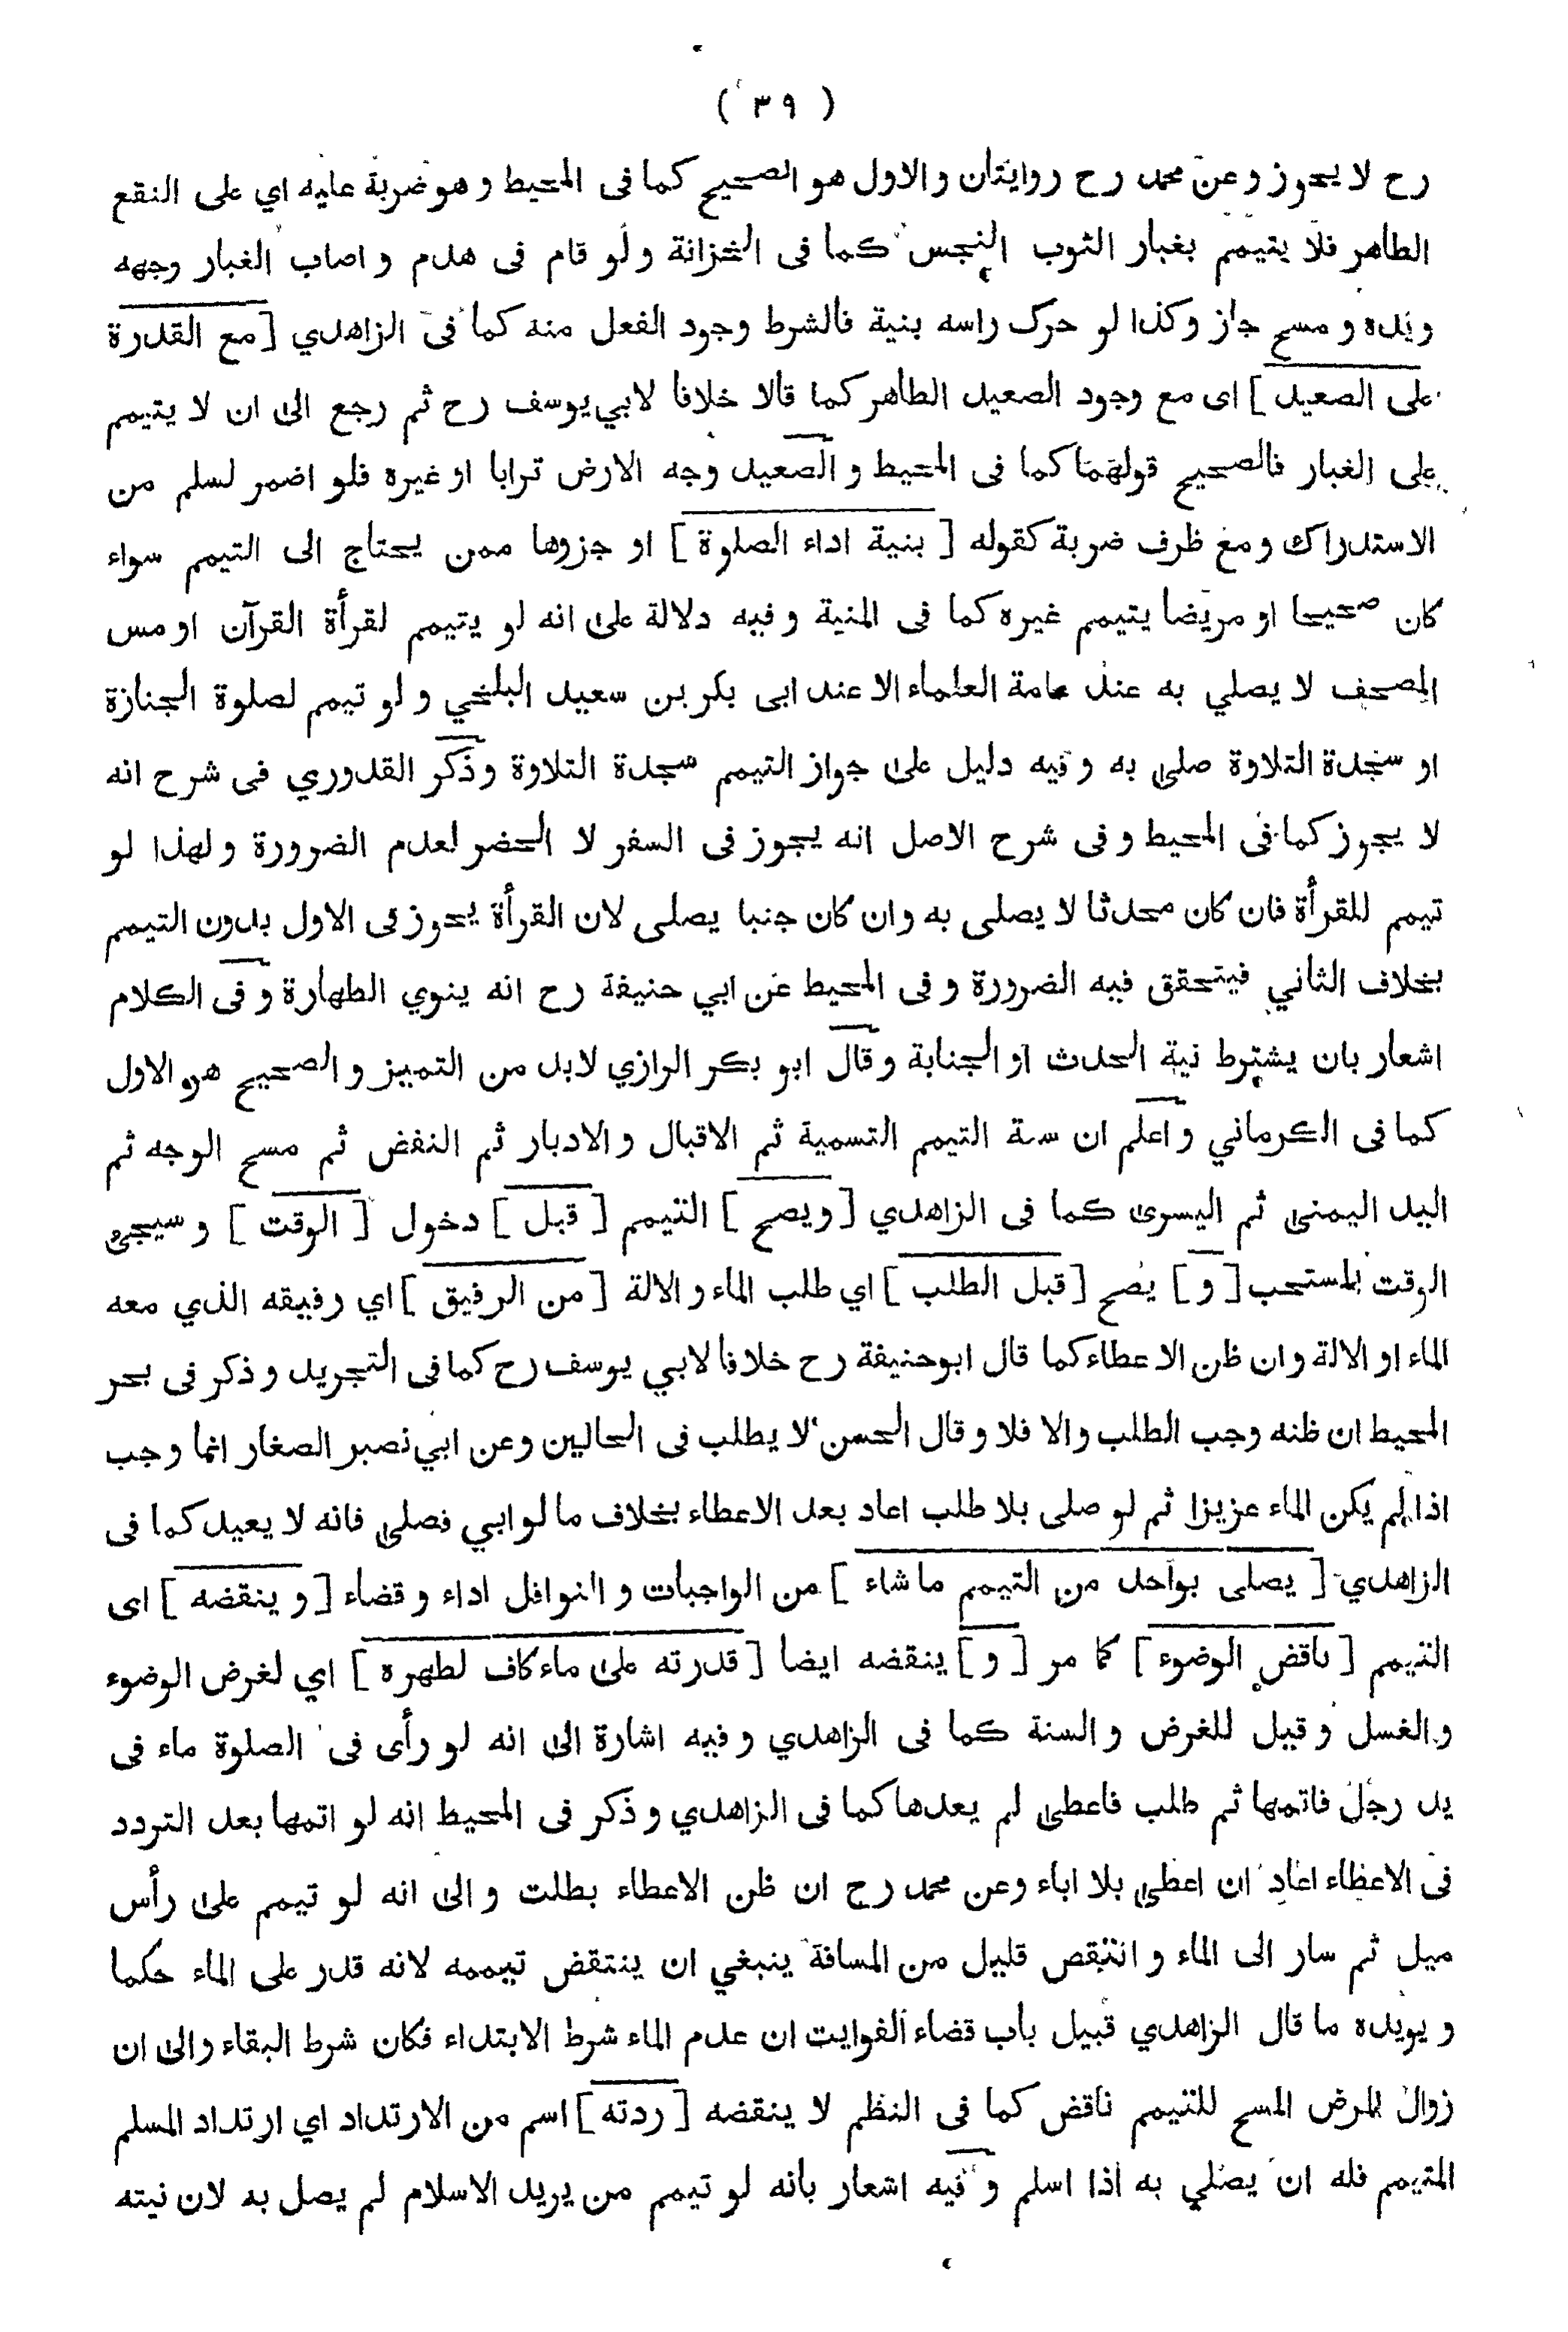 ( ٣٩ )
رح لا يجوز وعن محمد رح روايتان والاول هو الصحيح كما فى المحيط وهو ضربة عليه اي على النقع
الطاهر فلا يتيمم بغبار الثوب النجس كما فى الخزانة ولو قام فى هدم واصاب الغبار وجهه
ويده ومسح جاز وكذا لو حرك راسه بنية فالشرط وجود الفعل منه كما فى الزاهدي [مع القدرة
على الصعيد] اى مع وجود الصعيد الطاهر كما قالا خلافا لابي يوسف رح ثم رجع الى ان لا يتيمم
على الغبار فالصحيح قولهما كما فى المحيط والصعيد وجه الارض ترابا او غيره فلو اضمر لسلم من
الاستدراك ومع ظرف ضربة كقوله [بنية اداء الصلوة] او جزوها ممن يحتاج الى التيمم سواء
كان صحيحا او مريضا يتيمم غيره كما فى المنية وفيه دلالة على انه لو يتيمم لقرأة القرآن او مس
المصحف لا يصلي به عند عامة العلماء الا عند ابى بكر بن سعيد البلخي ولو تيمم لصلوة الجنازة
او سجدة التلاوة صلى به وفيه دليل على جواز التيمم سجدة التلاوة وذكر القدوري فى شرح انه
لا يجوز كما فى المحيط وفى شرح الاصل انه يجوز فى السفر لا الحضر لعدم الضرورة ولهذا لو
تيمم للقرأة فان كان محدثا لا يصلى به وان كان جنبا يصلى لان القرأة يجوز فى الاول بدون التيمم
بخلاف الثاني فيتحقق فيه الضرورة وفى المحيط عن ابي حنيفة رح انه ينوي الطهارة وفى الكلام
اشعار بان يشترط نية الحدث او الجنابة وقال ابو بكر الرازي لابد من التميز والصحيح هو الاول
كما فى الكرماني واعلم ان سنة التيمم التسمية ثم الاقبال والادبار ثم النفض ثم مسح الوجه ثم
اليد اليمنى ثم اليسرى كما فى الزاهدي [ويصح] التيمم [قبل] دخول [الوقت] وسيجئ
الوقت المستحب [و] يصح [قبل الطلب] اي طلب الماء والالة [من الرفيق] اي رفيقه الذي معه
الماء او الالة وان ظن الاعطاء كما قال ابوحنيفة رح خلافا لابي يوسف رح كما فى التجريد وذكر فى بحر
المحيط ان ظنه وجب الطلب والا فلا وقال الحسن لا يطلب فى الحالين وعن ابي نصبر الصغار انما وجب
اذا لم يكن الماء عزيزا ثم لو صلى بلا طلب اعاد بعد الاعطاء بخلاف ما لو ابى فصلى فانه لا يعيد كما فى
الزاهدي [يصلى بواحد من التيمم ما شاء] من الواجبات والنوافل اداء وقضاء [وينقضه] اى
التيمم [ناقض الوضوء] كما مر [و] ينقضه ايضا [قدرته على ماء كاف لطهره] اي لغرض الوضوء
والغسل وقيل للغرض والسنة كما فى الزاهدي وفيه اشارة الى انه لو رأى فى الصلوة ماء فى
يد رجل فاتمها ثم طلب فاعطى لم يعدها كما فى الزاهدي وذكر فى المحيط انه لو اتمها بعد التردد
فى الاعطاء اعاد ان اعطى بلا اباء وعن محمد رح ان ظن الاعطاء بطلت والى انه لو تيمم على رأس
ميل ثم سار الى الماء وانتقص قليل من المسافة ينبغي ان ينتقض تيممه لانه قدر على الماء حكما
ويويده ما قال الزاهدي قبيل باب قضاء الفوايت ان عدم الماء شرط الابتداء فكان شرط البقاء والى ان
زوال المرض المسح للتيمم ناقض كما فى النظم لا ينقضه [ردته] اسم من الارتداد اي ارتداد المسلم
المتيمم فله ان يصلي به اذا اسلم وفيه اشعار بانه لو تيمم من يريد الاسلام لم يصل به لان نيته